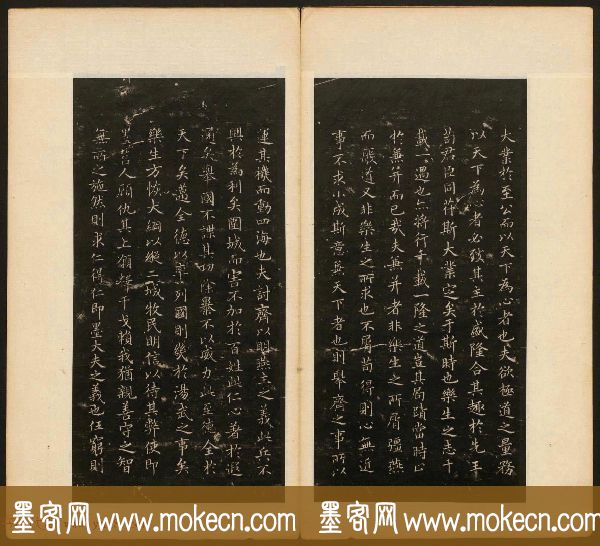 大業於至公而以天下為心者也夫欲極道之量務
以天下為心者必致其主於盛隆合其趣於先王
苟君臣同符斯大業定矣于斯時也樂生之志千
載一遇也亦將行千載一隆之道豈其局蹟當時止
於兼并而已哉夫兼并者非樂生之所屑彊燕
而廢道又非樂生之所求也不屑苟得則心無近
事不求小成斯意兼天下者也則舉齊之事所以
運其機而動四海也夫討齊以明燕主之義此兵不
興於為利矣圍城而害不加於百姓此仁心著於遐
邇矣舉國不謀其功除暴不以威力此至德全於
天下矣邁全德以率列國則幾於湯武之事矣
樂生方恢大綱以縱二城牧民明信以待其弊使即
墨莒人顧仇其上願釋干戈賴我猶親善守之智
無所之施然則求仁得仁即墨大夫之義也任窮則
墨客网 www.mokecn.com
墨客网 www.mokecn.com